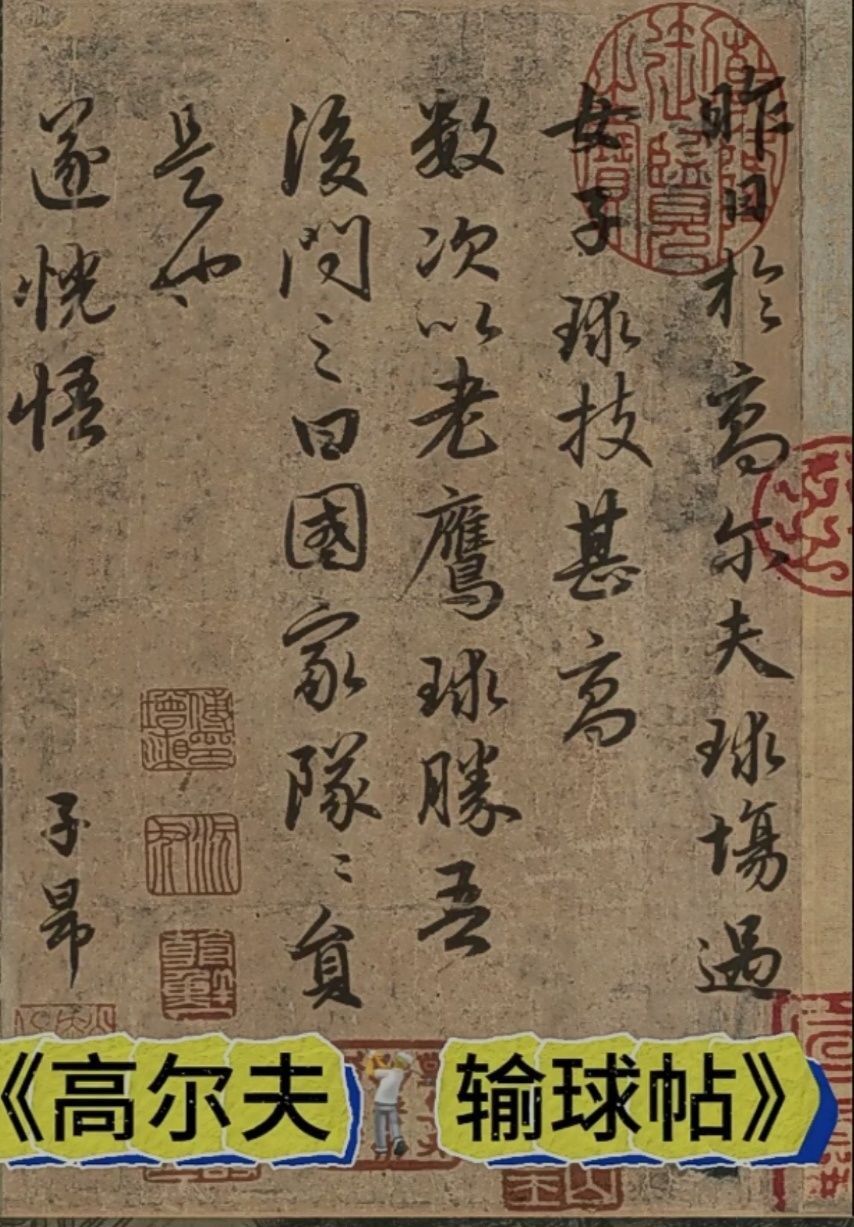 昨日於高尔夫球場過
女子球技甚高
数次以老鷹球勝吾
後問之曰國家隊〻員
是也
遂恍悟
子昻
《高尔夫 输球帖》